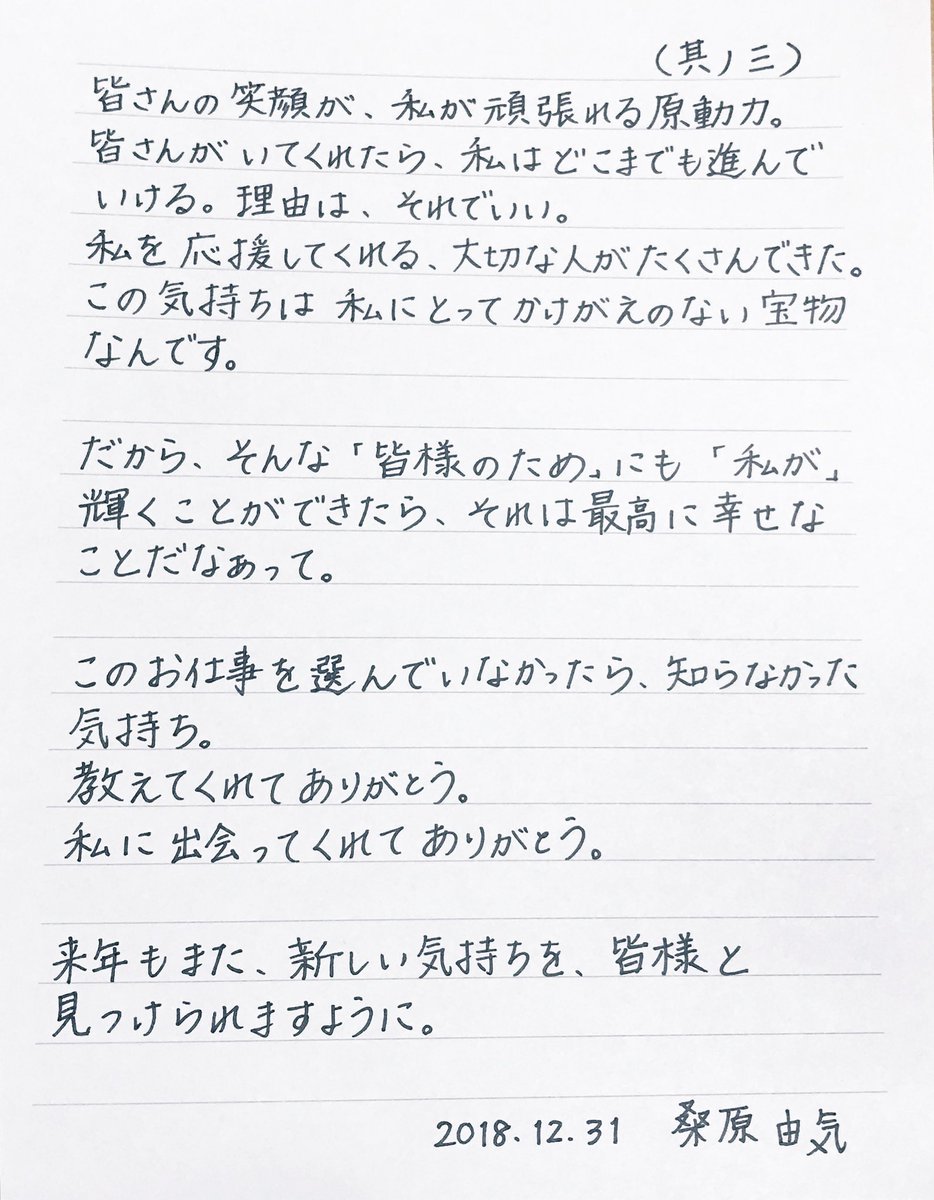 (其ノ三)
皆さんの笑顔が、私が頑張れる原動力。
皆さんがいてくれたら、私はどこまでも進んで
いける。理由は、それでいい。
私を応援してくれる、大切な人がたくさんできた。
この気持ちは私にとってかけがえのない宝物
なんです。
だから、そんな「皆様のため」にも「私が」
輝くことができたら、それは最高に幸せな
ことだなぁって。
このお仕事を選んでいなかったら、知らなかった
気持ち。
教えてくれてありがとう。
私に出会ってくれてありがとう。
来年もまた、新しい気持ちを、皆様と
見つけられますように。
2018.12.31 桑原由気